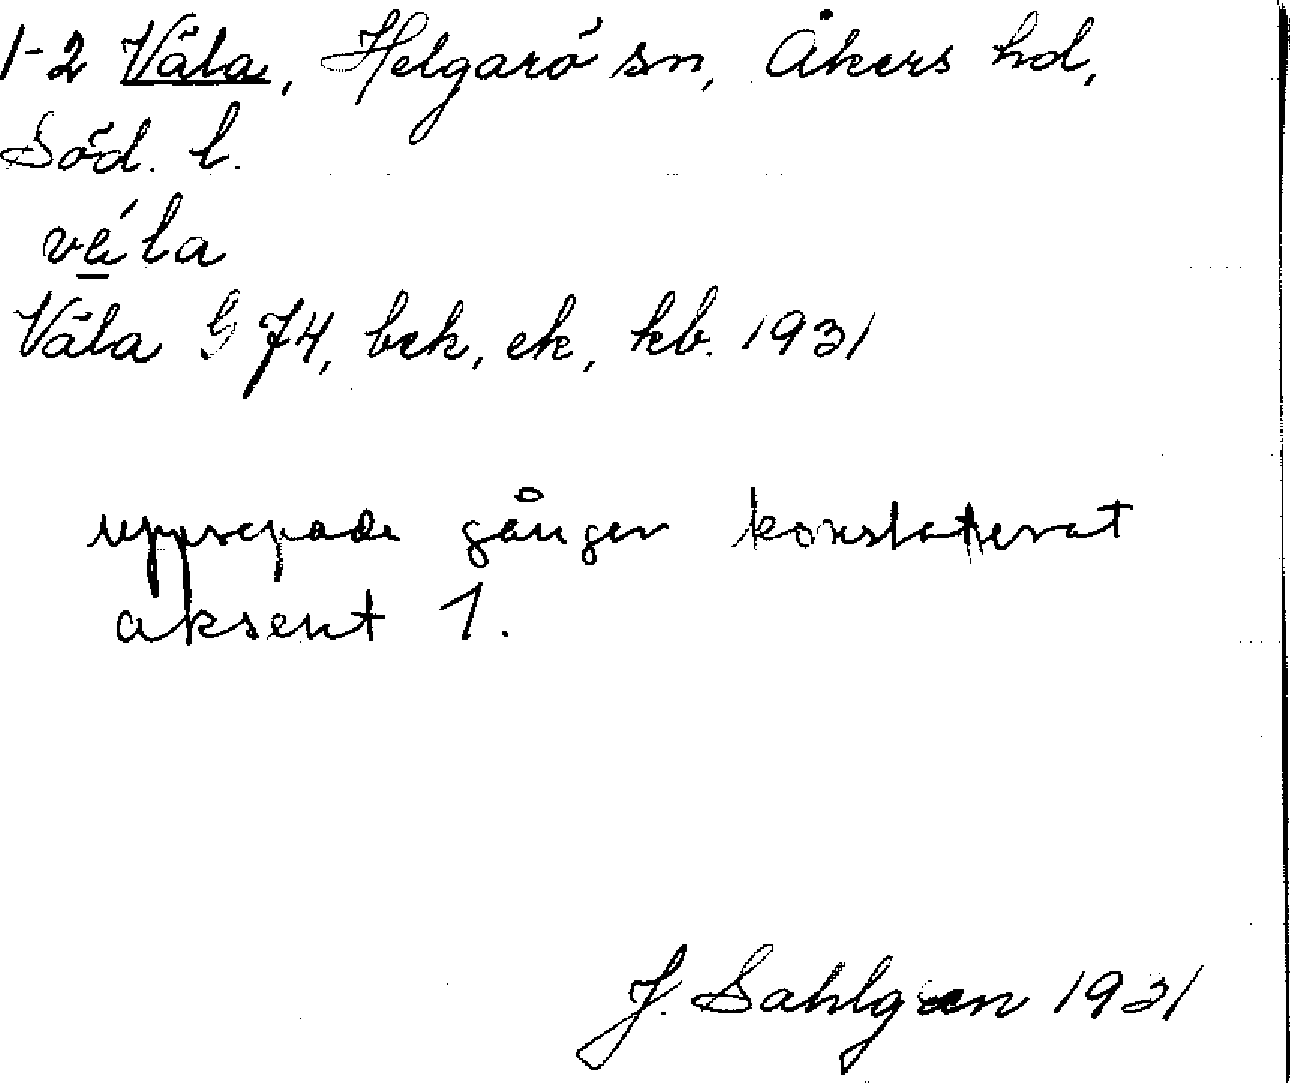 1-2 Väla, Helgarö sn, Åkers hd,
Söd. l.
vé̱la
Väla G 74, bek, ek, kb. 1931
upprepade gånger konstaterat
aksent 1.
J. Sahlgren 1931